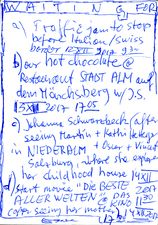 WAITING FOR
a) Traffic jam to stop
before Italian/Swiss
border 12XII 2017 9
b) our hot chocolate @
Restaurant STADT ALM auf
dem Mönchsberg w/J.S.
13XII 2017 17.05
c) Johanna Schwarzbeck (after
seeing Martin + Kathi
in NIEDERALM + Oscar + Vincent
Salzburg, where she
her childhood house 14XII
d) start movie "DIE BESTE 2017
ALLER WELTEN @ DAS 11 30
KINO
seeing her mother) 14XII